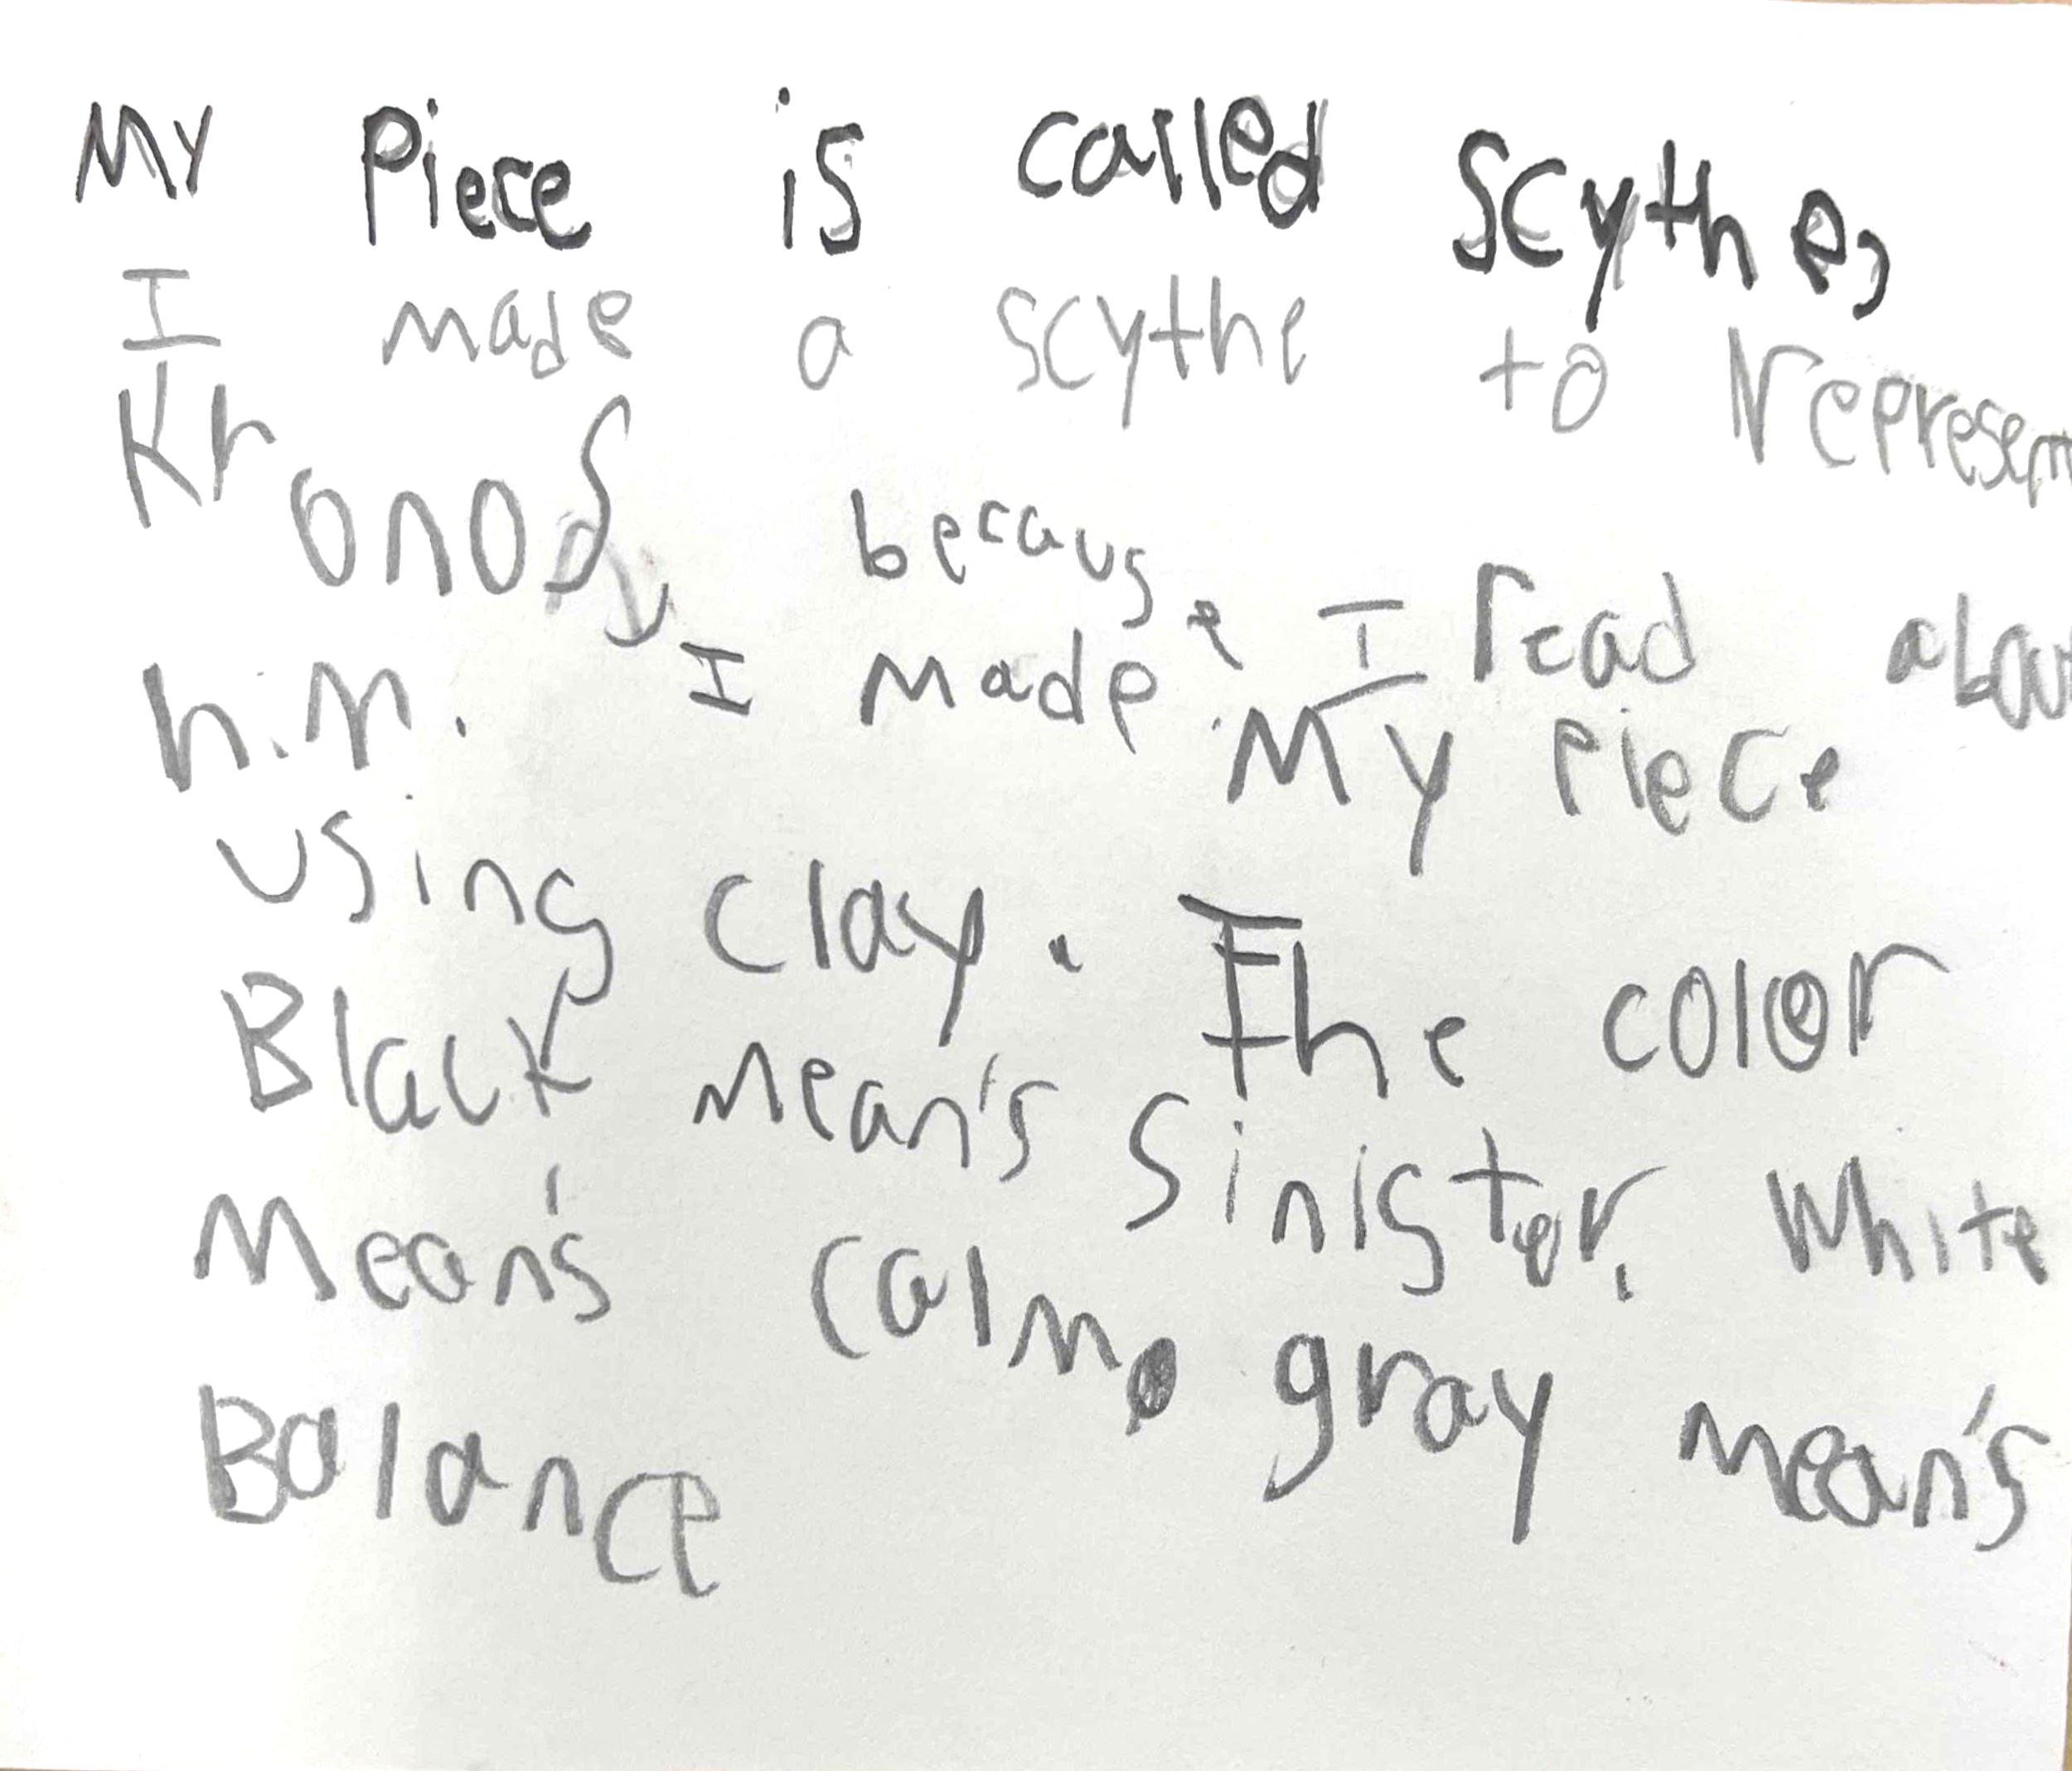 My Piece is called Scythe,
I made a scythe to represent
Kronos, because I read about
him. I made My Piece
using clay. The color
Black mean's Sinister. White
Mean's calm. gray mean's
Balance